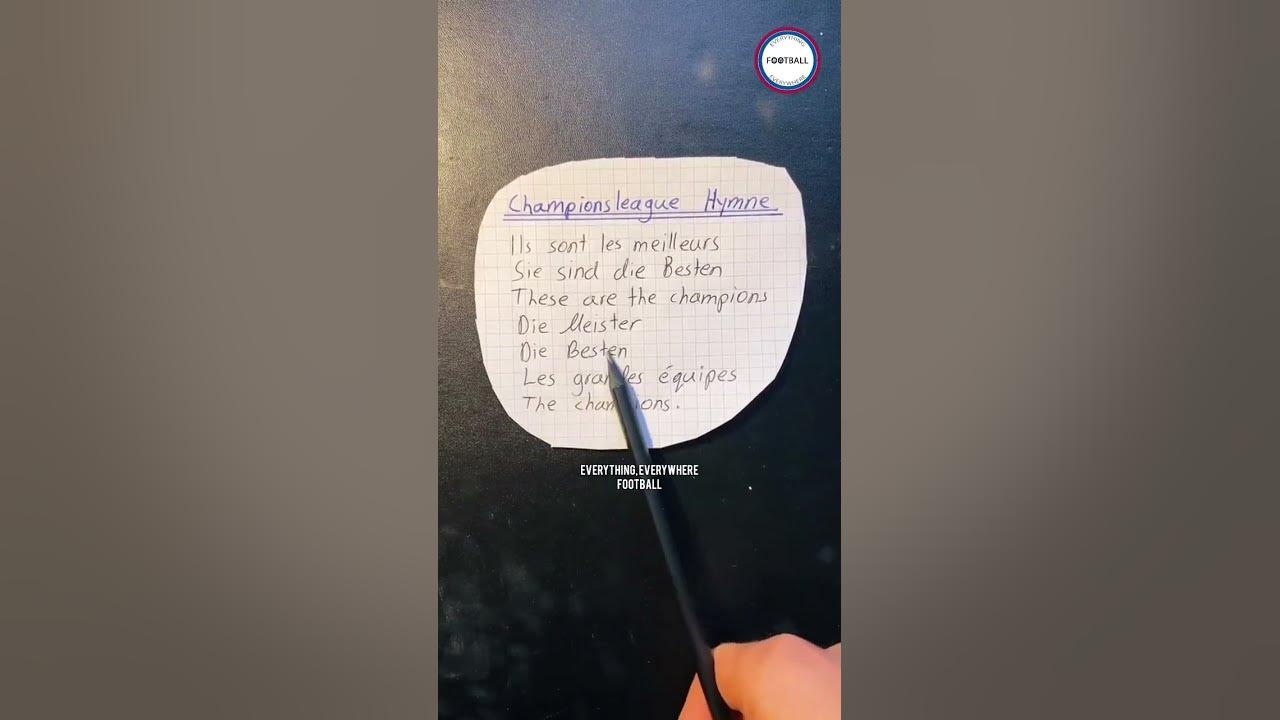 EVERYTHING
FOOTBALL
EVERYWHERE
Championsleague Hymne
Ils sont les meilleurs
Sie sind die Besten
These are the champions
Die Meister
Die Besten
Les grandes équipes
The champions.
EVERYTHING,EVERYWHERE
FOOTBALL